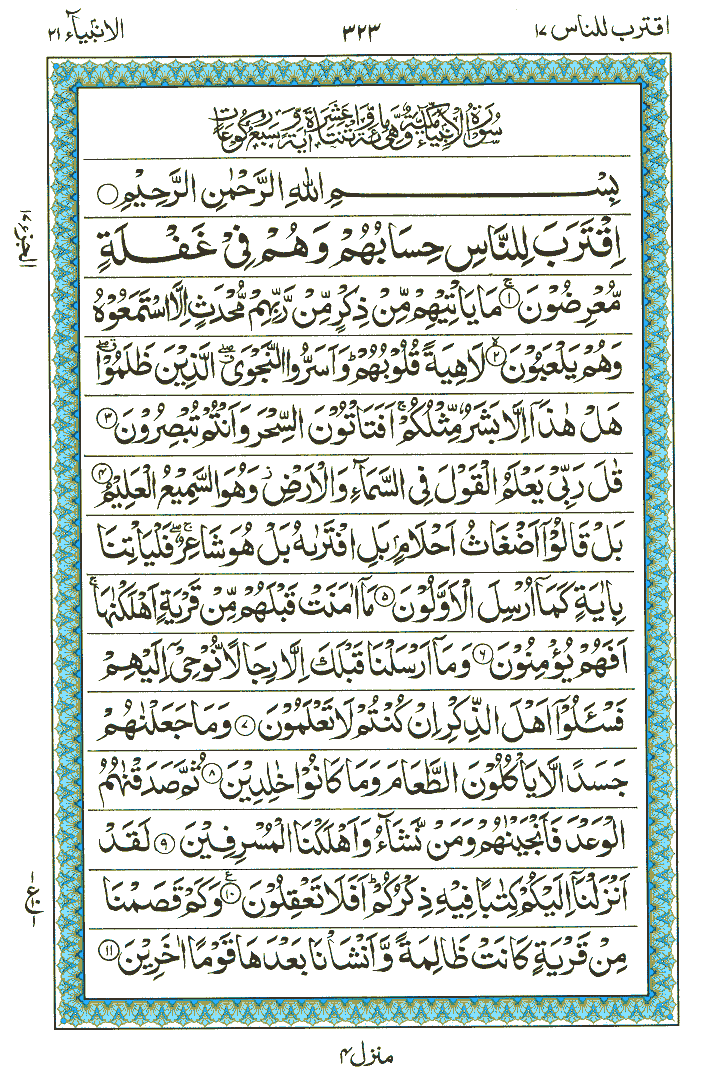 اقترب للناس ۱۷
۳۲۳
الانبیآء ۲۱
سُوْرَةُ الْاَنْۢبِیَآءِ مَكِّیَّةٌ وَّهِیَ مِائَةٌ وَّاثْنَتَا عَشْرَةَ اٰیَةً وَّسَبْعُ رُكُوْعَاتٍ
بِسْمِ اللّٰهِ الرَّحْمٰنِ الرَّحِیْمِ ○
اِقْتَرَبَ لِلنَّاسِ حِسَابُهُمْ وَهُمْ فِیْ غَفْلَةٍ
مُّعْرِضُوْنَ ۚ‏﴿۱﴾ مَا یَاْتِیْهِمْ مِّنْ ذِكْرٍ مِّنْ رَّبِّهِمْ مُّحْدَثٍ اِلَّا اسْتَمَعُوْهُ
وَهُمْ یَلْعَبُوْنَ ۙ‏﴿۲﴾ لَاهِیَةً قُلُوْبُهُمْ ؕ وَاَسَرُّوا النَّجْوَی ۖۗ الَّذِیْنَ ظَلَمُوْا ۖۗ
هَلْ هٰذَاۤ اِلَّا بَشَرٌ مِّثْلُكُمْ ۚ اَفَتَاْتُوْنَ السِّحْرَ وَاَنْتُمْ تُبْصِرُوْنَ ﴿۳﴾
قٰلَ رَبِّیْ یَعْلَمُ الْقَوْلَ فِی السَّمَآءِ وَالْاَرْضِ ؗ وَهُوَ السَّمِیْعُ الْعَلِیْمُ ﴿۴﴾
بَلْ قَالُوْۤا اَضْغَاثُ اَحْلَامٍۭ بَلِ افْتَرٰىهُ بَلْ هُوَ شَاعِرٌ ۖۚ فَلْیَاْتِنَا
بِاٰیَةٍ كَمَاۤ اُرْسِلَ الْاَوَّلُوْنَ ﴿۵﴾ مَاۤ اٰمَنَتْ قَبْلَهُمْ مِّنْ قَرْیَةٍ اَهْلَكْنٰهَا ۚ
اَفَهُمْ یُؤْمِنُوْنَ ﴿۶﴾ وَمَاۤ اَرْسَلْنَا قَبْلَكَ اِلَّا رِجَالًا نُّوْحِیْۤ اِلَیْهِمْ
فَسْـَٔلُوْۤا اَهْلَ الذِّكْرِ اِنْ كُنْتُمْ لَا تَعْلَمُوْنَ ﴿۷﴾ وَمَا جَعَلْنٰهُمْ
جَسَدًا لَّا یَاْكُلُوْنَ الطَّعَامَ وَمَا كَانُوْا خٰلِدِیْنَ ﴿۸﴾ ثُمَّ صَدَقْنٰهُمُ
الْوَعْدَ فَاَنْجَیْنٰهُمْ وَمَنْ نَّشَآءُ وَاَهْلَكْنَا الْمُسْرِفِیْنَ ﴿۹﴾ لَقَدْ
اَنْزَلْنَاۤ اِلَیْكُمْ كِتٰبًا فِیْهِ ذِكْرُكُمْ ؕ اَفَلَا تَعْقِلُوْنَ ‏﴿۱۰﴾ ع وَكَمْ قَصَمْنَا
مِنْ قَرْیَةٍ كَانَتْ ظَالِمَةً وَّاَنْشَاْنَا بَعْدَهَا قَوْمًا اٰخَرِیْنَ ﴿۱۱﴾
الجزء ۱۷
ع
منزل ۴